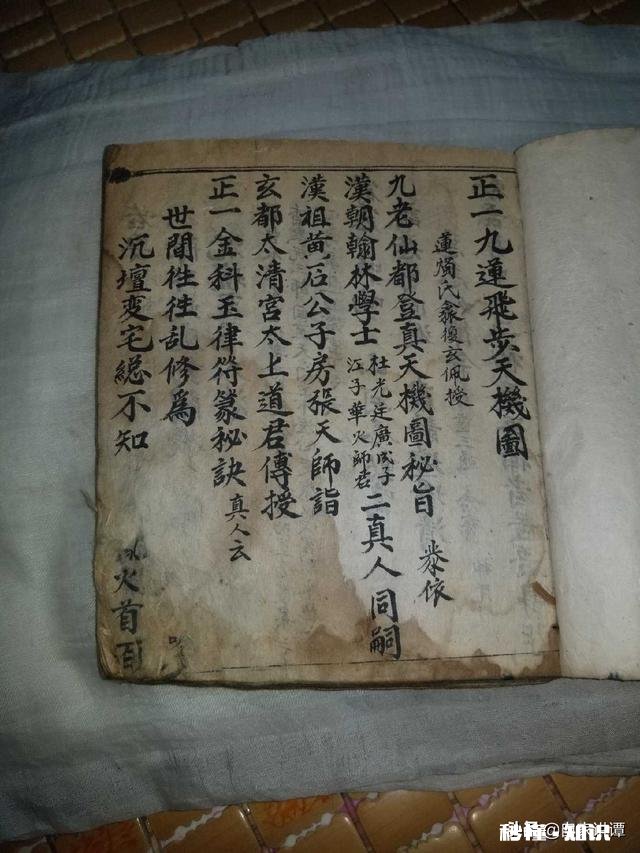 正一九蓮飛步天機圖
蓮燭氏 復玄佩授
九老仙都登真天機圖秘旨 叅依
漢朝翰林學士 杜光廷廣成子 江子華火師君 二真人同嗣
漢祖黃石公子房張天師詣
玄都太清宮太上道君傳授
正一金科玉律符篆秘訣 真人云
世間徃徃乱修為
沉壇变宅總不知
火首
秒懂·知识